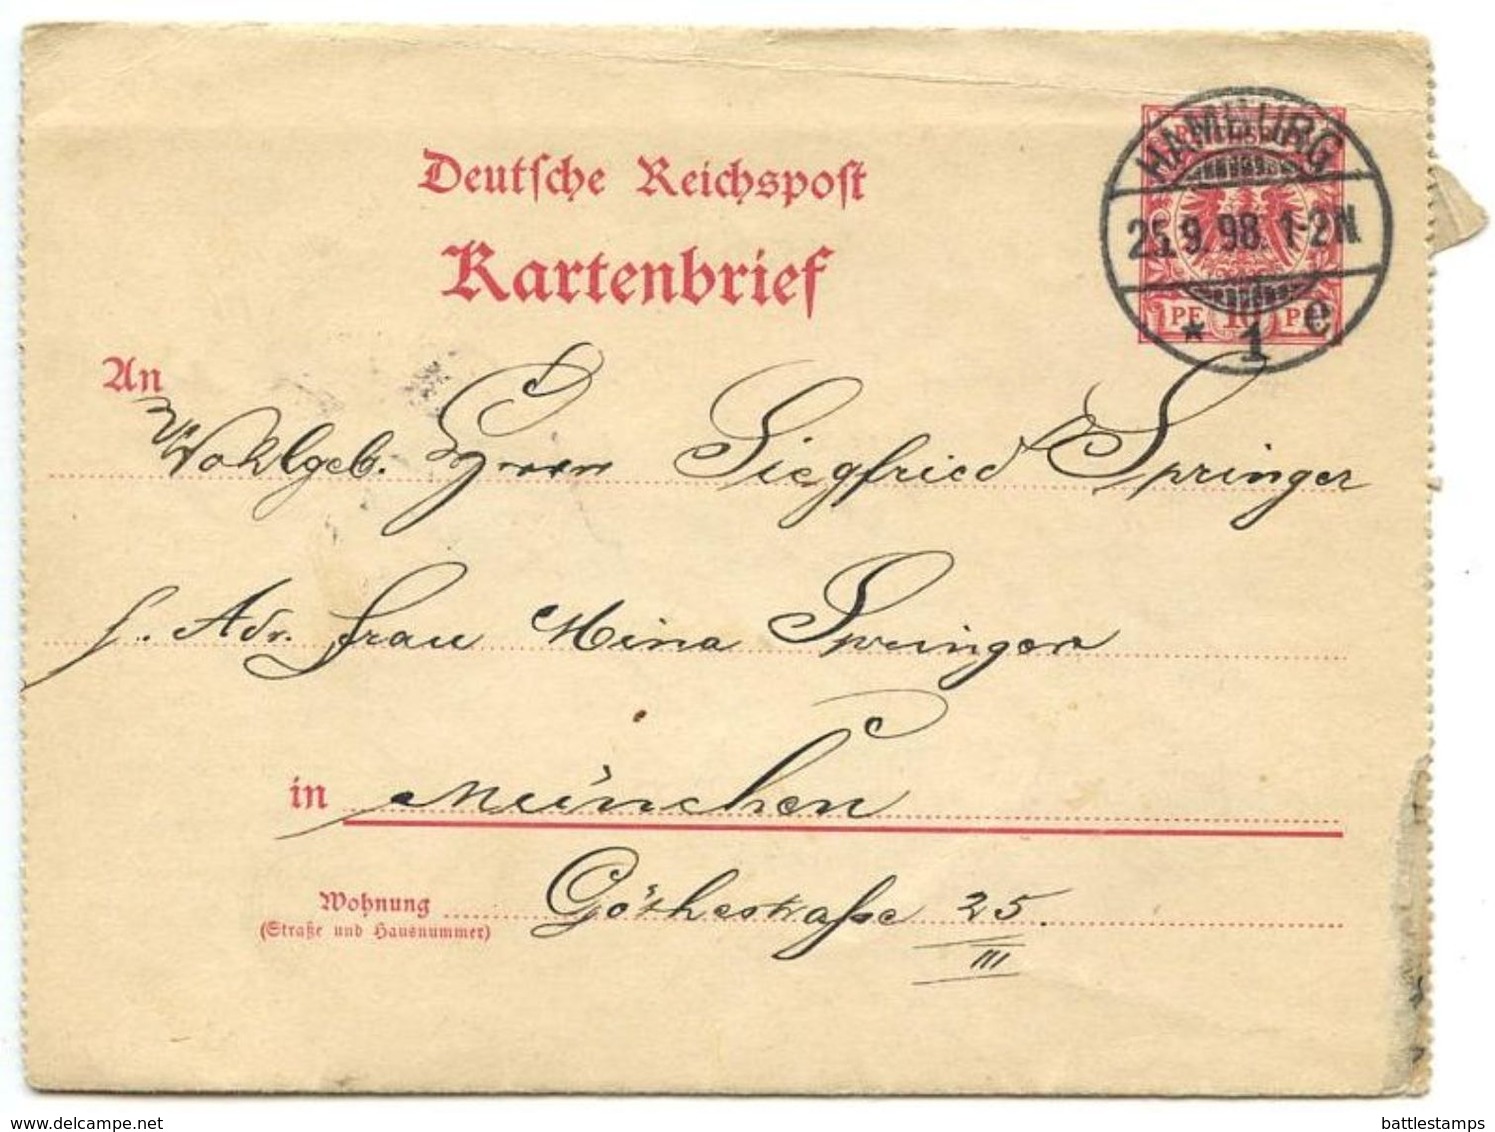 Deutsche Reichspost
Kartenbrief
HAMBURG
25.9.98. 1-2N
* 1 e
PF 10 PF
An
Wohlgeb. Herrn Siegfried Springer
p. Adr. Frau Mina Springer
in München
Wohnung Göthestraße 25
(Straße und Hausnummer)
III
delcampe.net
battlestamps